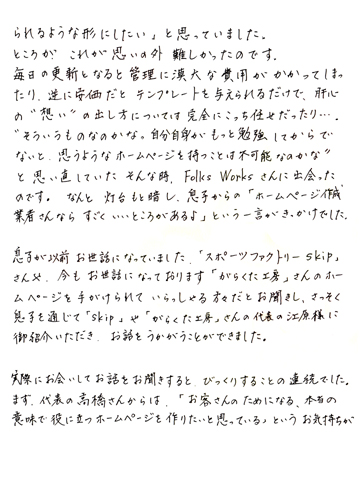 られるような形にしたい」と思っていました。
ところが これが思いの外 難しかったのです。
毎日の更新となると管理に漠大な費用がかかってしまっ
たり、逆に安価だと テンプレートを与えられるだけで、肝心
の"想い"の出し方については完全にこっち任せだったり…。
"そういうものなのかな。自分自身がもっと勉強してからで
ないと、思うようなホームページを持つことは不可能なのかな"
と思い直していた そんな時、Folks Worksさんに出会った
のです。 なんと 灯台もと暗し、息子からの「ホームページ作成
業者さんなら すごくいいところがあるよ」という一言がきっかけでした。
息子が以前お世話になっていました、「スポーツファクトリーskip」
さんや、今もお世話になっております「がらくた工房」さんのホー
ムページを手がけられて いらっしゃる方々だとお聞きし、さっそく
息子を通じて「skip」や「がらくた工房」さんの代表の江原様に
御紹介いただき、お話をうかがうことができました。
実際にお会いしてお話をお聞きすると、びっくりすることの連続でした。
まず、代表の高橋さんからは、「お客さんのためになる、本当の
意味で役に立つホームページを作りたいと思っている」という お気持ちが